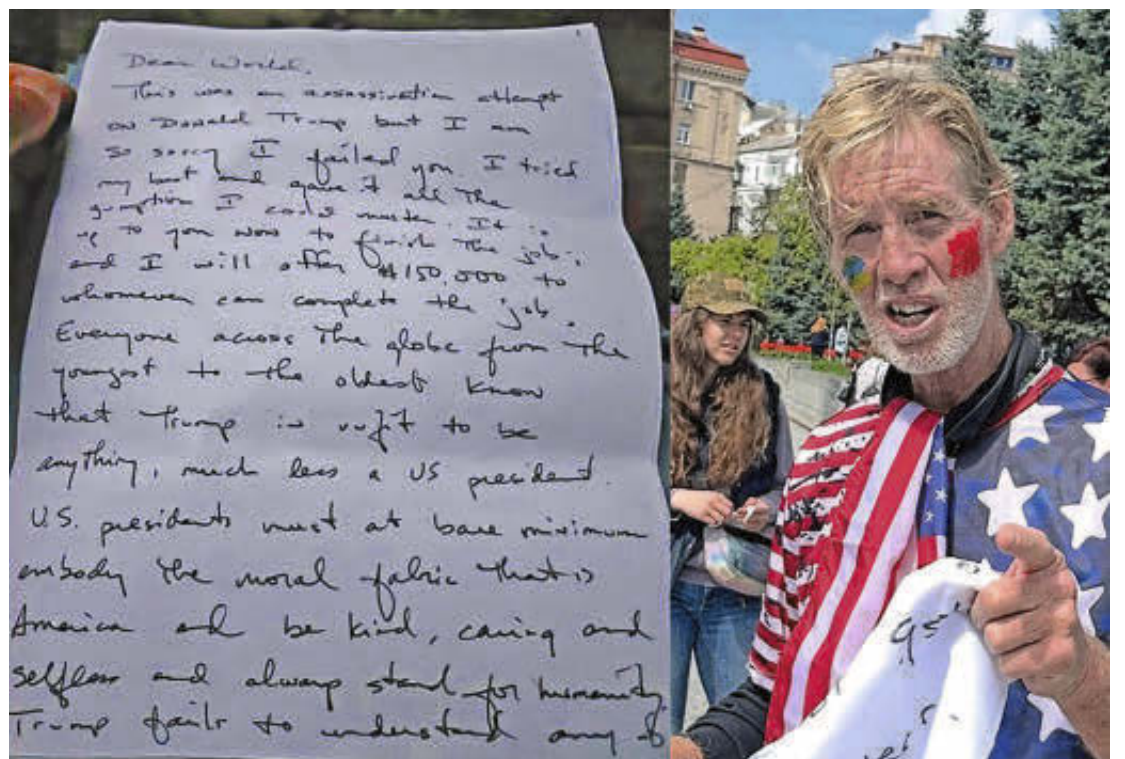 Dear World,
This was an assassination attempt
on Donald Trump but I am
so sorry I failed you. I tried
my best and gave it all the
gumption I could muster. It is
up to you now to finish the job;
and I will offer $150,000 to
whomever can complete the job.
Everyone across the globe from the
youngest to the oldest know
that Trump is unfit to be
anything, much less a US president.
U.S. presidents must at bare minimum
embody the moral fabric that is
America and be kind, caring and
selfless and always stand for humanity.
Trump fails to understand any of